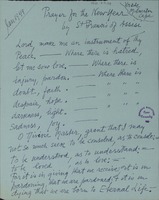 Prayer for the New Year
by St Francis of Assisi
Lord, make me an instrument of Thy
Peace — Where there is hatred,
let me sow love, — Where there is
injury, pardon, — Where there is
doubt, faith,
despair, hope,
darkness, light,
Sadness, joy.
O Divine Master, grant that I may
not so much seek to be consoled, as to console;
To be understood, as to understand;
to be loved, as to love;
for it is in giving that we receive, it is in
pardoning that we are pardoned & it is in
dying that we are born to Eternal Life.